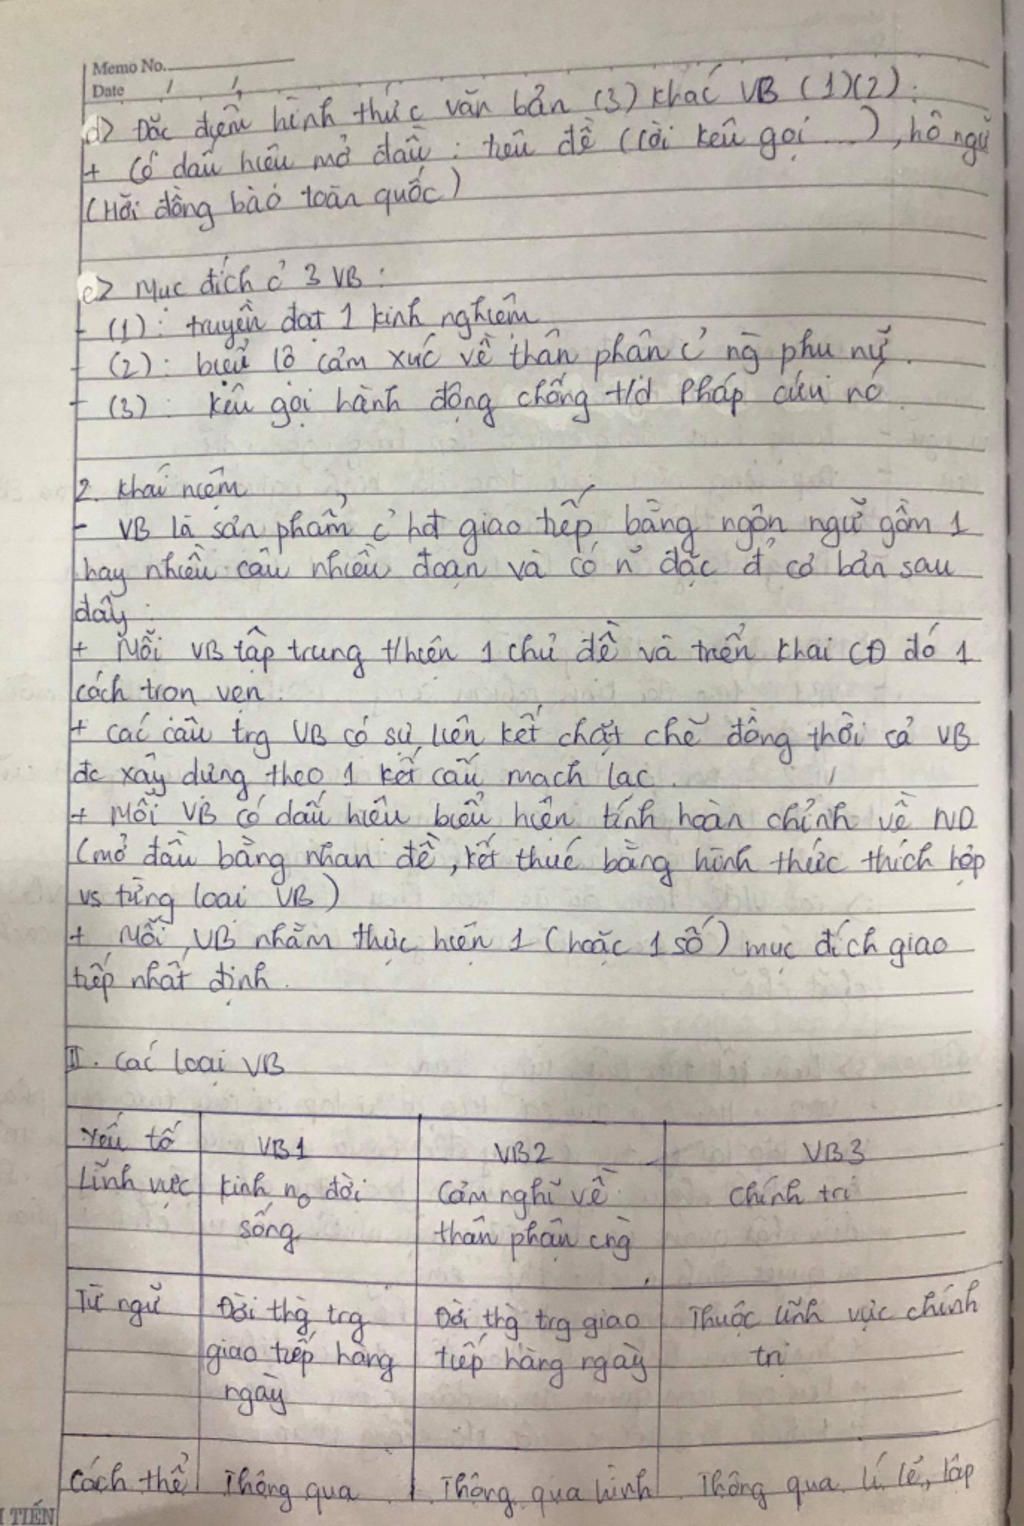 Memo No.
Date / /
d> Đặc điểm hình thức văn bản (3) khác VB (1)(2):
+ Có dấu hiệu mở đầu: tiêu đề (lời kêu gọi ...), hô ngữ
(Hỡi đồng bào toàn quốc)
e> Mục đích củ 3 VB:
- (1): truyền đạt 1 kinh nghiệm
- (2): biểu lộ cảm xúc về thân phận củ ng phụ nữ.
- (3): kêu gọi hành động chống t/d Pháp cứu nc
2. Khái niệm
- VB là sản phẩm củ hđ giao tiếp bằng ngôn ngữ gồm 1
hay nhiều câu nhiều đoạn và có n~ đặc đ' cơ bản sau
đây:
+ Mỗi VB tập trung t/hiện 1 chủ đề và triển khai CĐ đó 1
cách trọn vẹn.
+ Các câu trg VB có sự liên kết chặt chẽ đồng thời cả VB
đc xây dựng theo 1 kết cấu mạch lạc.
+ Mỗi VB có dấu hiệu biểu hiện tính hoàn chỉnh về ND
(mở đầu bằng nhan đề, kết thúc bằng hình thức thích hợp
vs từng loại VB)
+ Mỗi VB nhằm thực hiện 1 (hoặc 1 số) mục đích giao
tiếp nhất định.
II. Các loại VB
Yếu tố VB1 VB2 VB3
Lĩnh vực Kinh no đời Cảm nghĩ về Chính trị
sống thân phận cng
Từ ngữ Đời thg trg Đời thg trg giao Thuộc lĩnh vực chính
giao tiếp hàng tiếp hàng ngày trị
ngày
Cách thể Thông qua Thông qua hình Thông qua lí lẽ, lập
TIẾN